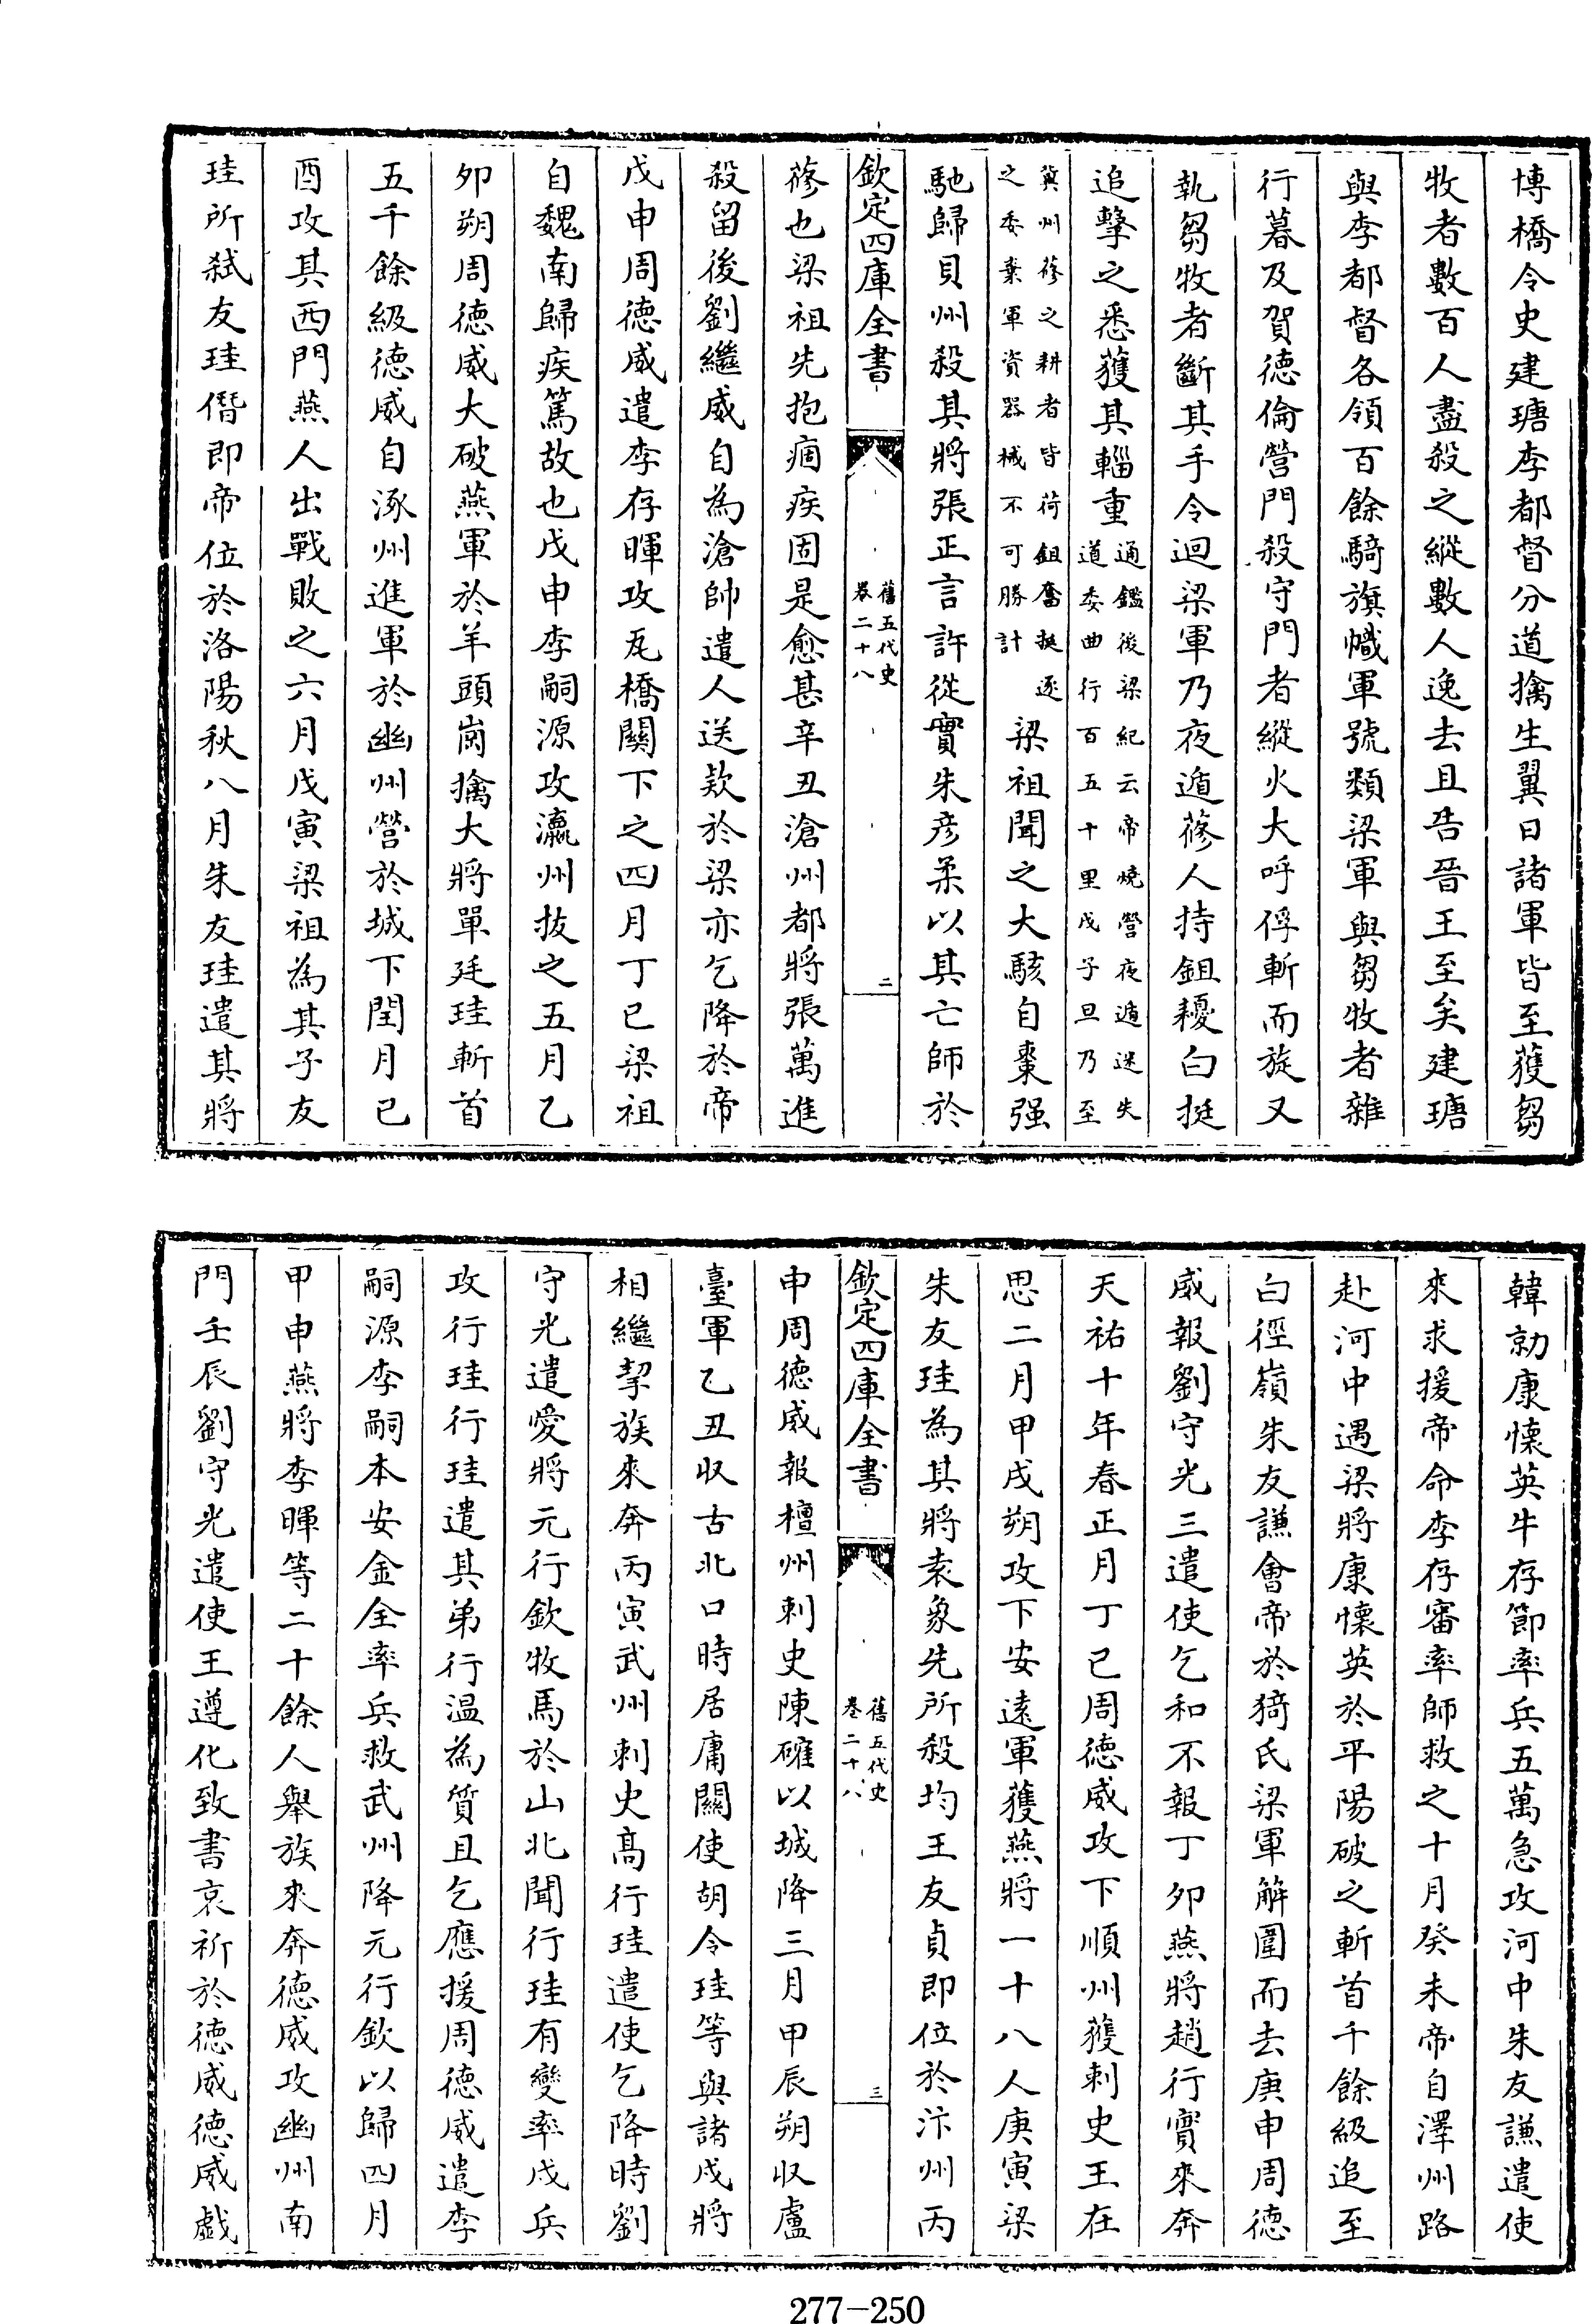 博橋令史建瑭李都督分道擒生翼日諸軍皆至獲芻
牧者數百人盡殺之縱數人逸去且告晉王至矣建瑭
與李都督各領百餘騎旗幟軍號類梁軍與芻牧者雜
行暮及賀德倫營門殺守門者縱火大呼俘斬而旋又
執芻牧者斷其手令迴梁軍乃夜遁蓨人持鉏耰白挺
追擊之悉獲其輜重通鑑後梁紀云帝燒營夜遁迷失
道委曲行百五十里戊子旦乃至
冀州蓨之耕者皆荷鉏奮挺逐
之委棄軍資器械不可勝計梁祖聞之大駭自棗强
馳歸貝州殺其將張正言許從實朱彦柔以其亡師於
欽定四庫全書
舊五代史
卷二十八
二
蓨也梁祖先抱痼疾因是愈甚辛丑滄州都將張萬進
殺留後劉繼威自為滄帥遣人送欵於梁亦乞降於帝
戊申周德威遣李存暉攻瓦橋關下之四月丁巳梁祖
自魏南歸疾篤故也戊申李嗣源攻瀛州拔之五月乙
卯朔周德威大破燕軍於羊頭岡擒大將單廷珪斬首
五千餘級德威自涿州進軍於幽州營於城下閏月己
酉攻其西門燕人出戰敗之六月戊寅梁祖為其子友
珪所弑友珪僭即帝位於洛陽秋八月朱友珪遣其將
韓勍康懷英牛存節率兵五萬急攻河中朱友謙遣使
來求援帝命李存審率師救之十月癸未帝自澤州路
赴河中遇梁將康懷英於平陽破之斬首千餘級追至
白徑嶺朱友謙會帝於猗氏梁軍解圍而去庚申周德
威報劉守光三遣使乞和不報丁卯燕將趙行實來奔
天祐十年春正月丁巳周德威攻下順州獲刺史王在
思二月甲戌朔攻下安遠軍獲燕將一十八人庚寅梁
朱友珪為其將袁象先所殺均王友貞即位於汴州丙
欽定四庫全書
舊五代史
卷二十八
三
申周德威報檀州刺史陳確以城降三月甲辰朔收盧
臺軍乙丑收古北口時居庸關使胡令珪等與諸戍將
相繼挈族來奔丙寅武州刺史高行珪遣使乞降時劉
守光遣愛將元行欽牧馬於山北聞行珪有變率戍兵
攻行珪行珪遣其弟行温為質且乞應援周德威遣李
嗣源李嗣本安金全率兵救武州降元行欽以歸四月
甲申燕將李暉等二十餘人舉族來奔德威攻幽州南
門壬辰劉守光遣使王遵化致書哀祈於德威德威戲
277-250